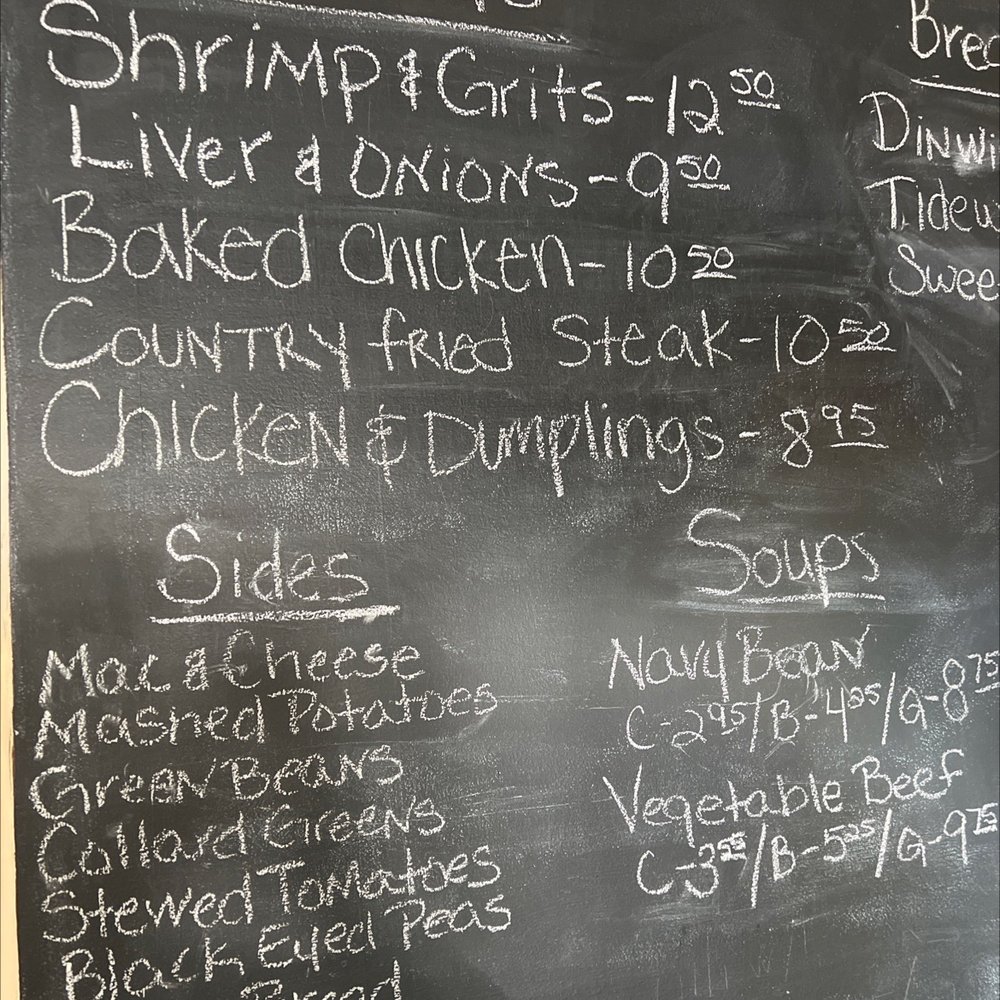 Shrimp & Grits - 12 50
Liver & Onions - 9 50
Baked Chicken - 10 50
Country fried Steak - 10 50
Chicken & Dumplings - 8 95
Sides
Mac & Cheese
Mashed Potatoes
Green Beans
Collard Greens
Stewed Tomatoes
Black Eyed Peas
Bread
Soups
Navy Bean
C - 2 95 / B - 4 95 / G - 8 75
Vegetable Beef
C - 3 25 / B - 5 25 / G - 9 75
Brea
Dinwi
Tidew
Swee